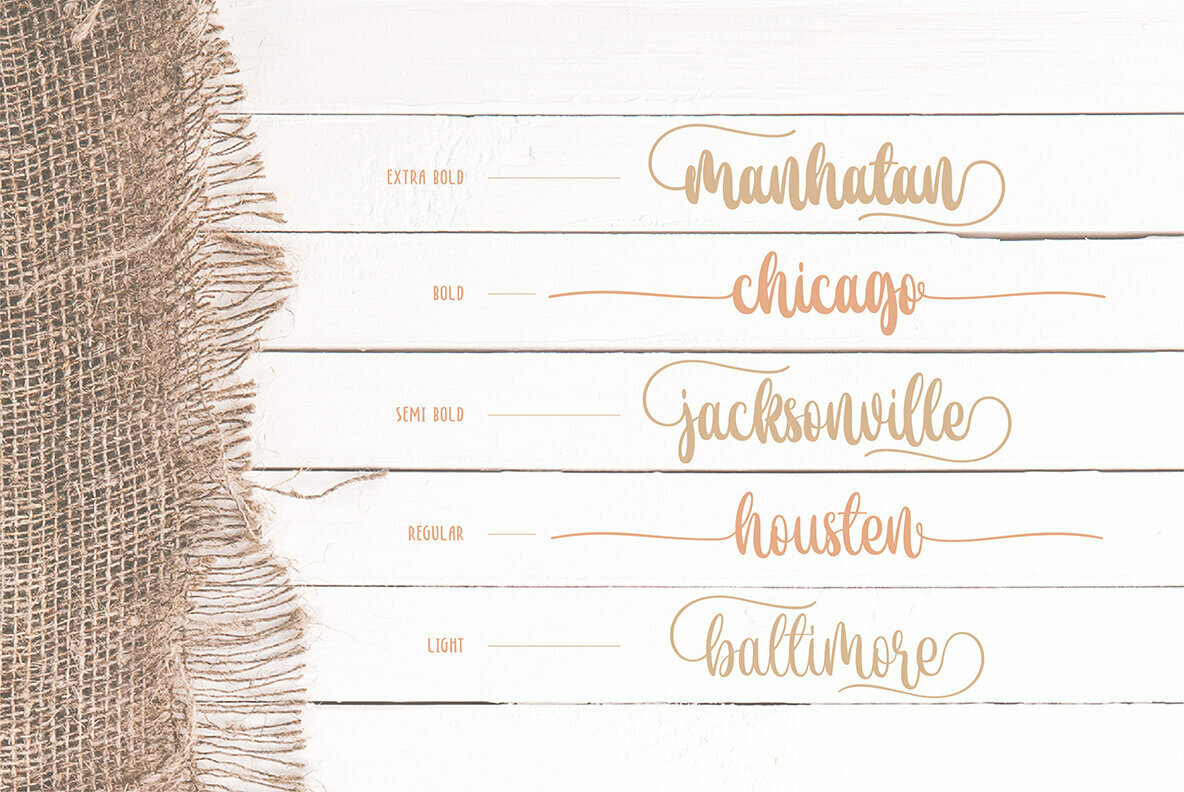 EXTRA BOLD manhatan
BOLD chicago
SEMI BOLD jacksonville
REGULAR housten
LIGHT baltimore